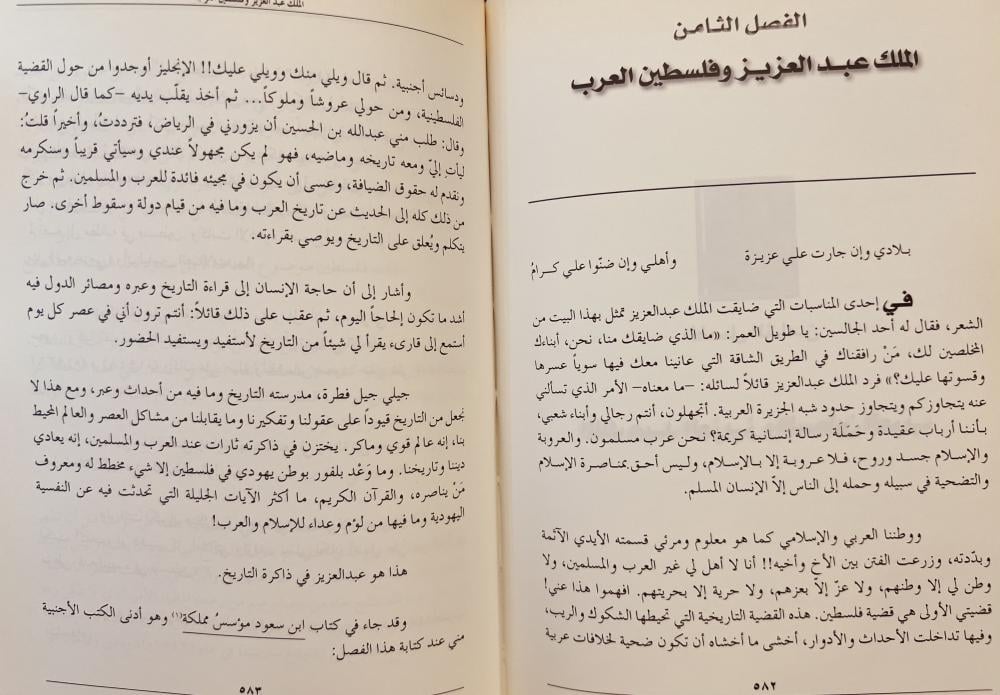 الفصل الثامن
الملك عبد العزيز وفلسطين العرب
بلادي وإن جارت علي عزيزة وأهلي وإن ضنّوا علي كرامُ
في إحدى المناسبات التي ضايقت الملك عبدالعزيز تمثل بهذا البيت من
الشعر، فقال له أحد الجالسين: يا طويل العمر: «ما الذي ضايقك منا، نحن، أبناءك
المخلصين لك، مَنْ رافقناك في الطريق الشاقة التي عانينا معك فيها سوياً عسرها
وقسوتها عليك؟» فرد الملك عبدالعزيز قائلاً لسائله: –ما معناه– الأمر الذي تسألني
عنه يتجاوزكم ويتجاوز حدود شبه الجزيرة العربية. أتجهلون، أنتم رجالي وأبناء شعبي،
بأننا أرباب عقيدة وحَمَلَة رسالة إنسانية كريمة؟ نحن عرب مسلمون. والعروبة
والإسلام جسد وروح، فلا عروبة إلا بالإسلام، وليس أحق بمناصرة الإسلام
والتضحية في سبيله وحمله إلى الناس إلاّ الإنسان المسلم.
ووطننا العربي والإسلامي كما هو معلوم ومرئي قسمته الأيدي الآثمة
وبدّدته، وزرعت الفتن بين الأخ وأخيه!! أنا لا أهل لي غير العرب والمسلمين، ولا
وطن لي إلا وطنهم، ولا عزّ إلاّ بعزهم، ولا حرية إلا بحريتهم. افهموا هذا عني!
قضيتي الأولى هي قضية فلسطين. هذه القضية التاريخية التي تحيطها الشكوك والريب،
وفيها تداخلت الأحداث والأدوار، أخشى ما أخشاه أن تكون ضحية لخلافات عربية
٥٨٢
ودسائس أجنبية. ثم قال ويلي منك وويلي عليك!! الإنجليز أوجدوا من حول القضية
الفلسطينية، ومن حولي عروشاً وملوكاً... ثم أخذ يقلّب يديه –كما قال الراوي–
وقال: طلب مني عبدالله بن الحسين أن يزورني في الرياض، فترددتُ، وأخيراً قلتُ:
ليأت إليّ ومعه تاريخه وماضيه، فهو لم يكن مجهولاً عندي وسيأتي قريباً وسنكرمه
ونقدم له حقوق الضيافة، وعسى أن يكون في مجيئه فائدة للعرب والمسلمين. ثم خرج
من ذلك كله إلى الحديث عن تاريخ العرب وما فيه من قيام دولة وسقوط أخرى. صار
يتكلم ويُعلق على التاريخ ويوصي بقراءته.
وأشار إلى أن حاجة الإنسان إلى قراءة التاريخ وعبره ومصائر الدول فيه
أشد ما تكون إلحاحاً اليوم، ثم عقب على ذلك قائلاً: أنتم ترون أني في عصر كل يوم
أستمع إلى قارىء يقرأ لي شيئاً من التاريخ لأستفيد ويستفيد الحضور.
جيلي جيل فطرة، مدرسته التاريخ وما فيه من أحداث وعبر، ومع هذا لا
نجعل من التاريخ قيوداً على عقولنا وتفكيرنا وما يقابلنا من مشاكل العصر والعالم المحيط
بنا، إنه عالم قوي وماكر. يختزن في ذاكرته ثارات عند العرب والمسلمين، إنه يعادي
ديننا وتاريخنا. وما وَعْد بلفور بوطن يهودي في فلسطين إلا شيء مخطط له ومعروف
مَنْ يناصره، والقرآن الكريم، ما أكثر الآيات الجليلة التي تحدثت فيه عن النفسية
اليهودية وما فيها من لؤم وعداء للإسلام والعرب!
هذا هو عبدالعزيز في ذاكرة التاريخ.
وقد جاء في كتاب ابن سعود مؤسسُ مملكة(١) وهو أدنى الكتب الأجنبية
مني عند كتابة هذا الفصل:
٥٨٣